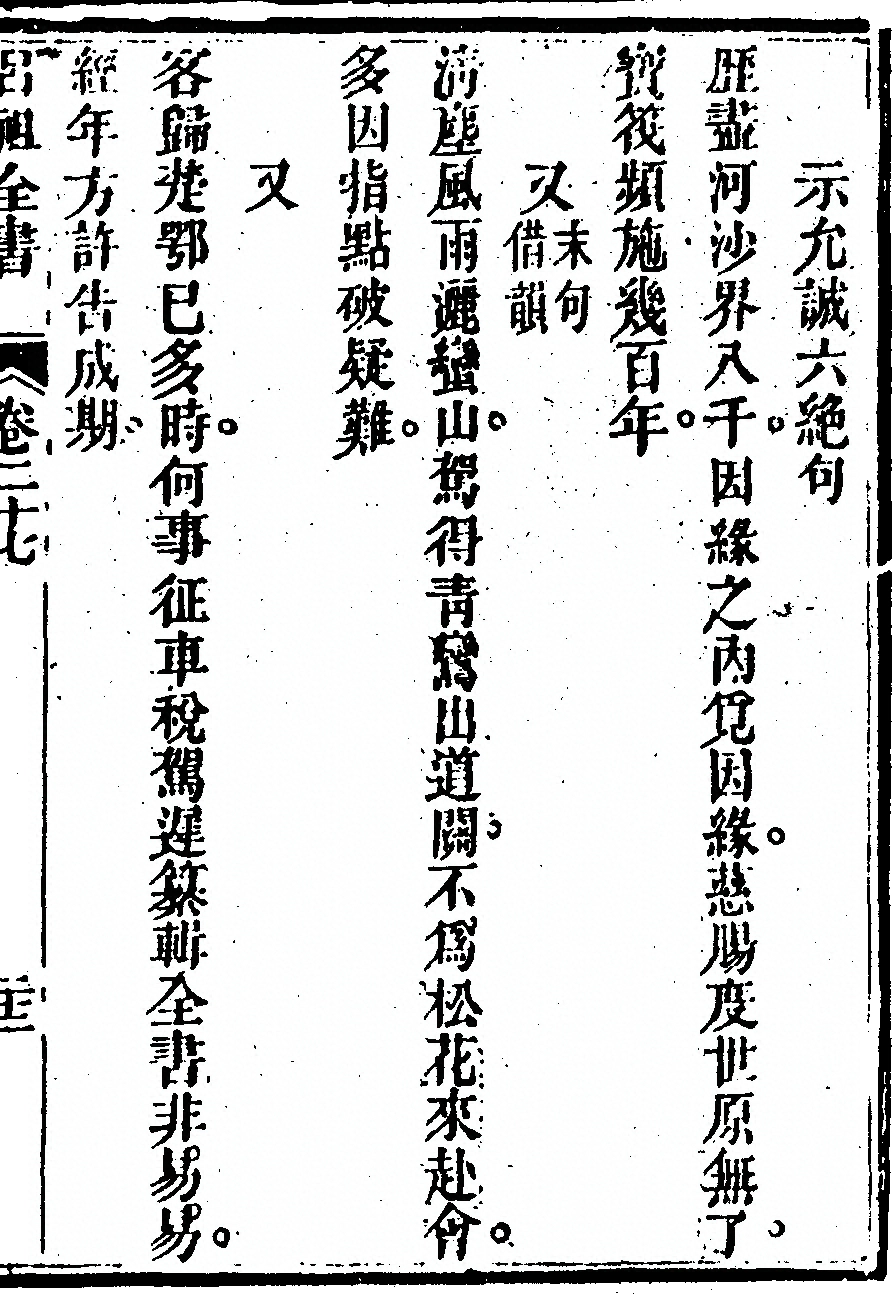 示允誠六絶句
歷盡河沙界八千因緣之內覓因緣慈腸度世原無了
寶筏頻施幾百年
又末句借韻
清塵風雨灑蠻山駕得青鸞出道關不爲松花來赴會
多因指點破疑難
又
客歸楚鄂已多時何事征車稅駕遲纂輯全書非易易
經年方許告成期
呂祖全書 卷二十七